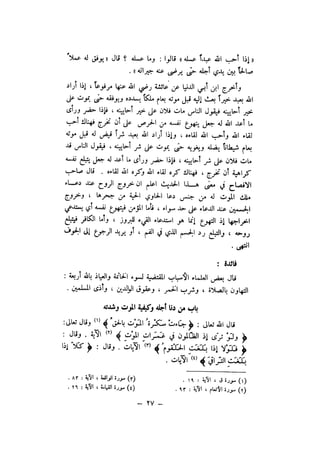 « إذا أحب الله عبداً عسله » قالوا : وما عسله ؟ قال « يوفق له عملاً
صالحاً بين يدي أجله حتى يرضى عنه جيرانه » .
وأخرج ابن أبي الدنيا عن عائشة رضي الله عنها مرفوعاً ، إذا أراد
الله بعبد خيراً بعث إليه قبل موته بعام ملكاً يسدده ويوفقه حتى يموت على
خير أحايينه ، فيقول الناس مات فلان على خير أحايينه ، فإذا حضر ورأى
ما أعد الله له جعل يتهوع نفسه من الحرص على أن تخرج فهناك أحب
لقاء الله وأحب الله لقاءه ، وإذا أراد الله بعبد شراً قيض له قبل موته
بعام شيطاناً يضله ويغويه حتى يموت على شر أحايينه ، فيقول الناس قد
مات فلان على شر أحايينه ، فإذا حضر ورأى ما أعد له جعل يتبلع نفسه
كراهية أن تخرج ، فهناك كره لقاء الله وكره الله لقاءه . قال صاحب
الافصاح في معنى هذا الحديث اعلم ان خروج الروح عند دعاء
ملك الموت له من جنس دعا الحاوي الحية من جحرها ، وخروج
الجسمين عند الدعاء على حد سواء ، فأما المؤمن فيتهوع نفسه أي يستدعي
اخراجها إذ التهوع إنما هو استدعاء القيء للبروز ، وأما الكافر فيتبلع
روحه ، والتبلع رد الجسم الذي في الفم ، أو يريد الرجوع إلى الجوف
. انتهى
فائدة :
قال بعض العلماء الأسباب المقتضية لسوء الخاتمة والعياذ بالله أربعة :
التهاون بالصلاة ، وشرب الخمر ، وعقوق الوالدين ، وأذى المسلمين .
باب من دنا أجله وكيفية الموت وشدته
قال الله تعالى قال : ﴿ وجاءت سكرة الموت بالحق ﴾ (١) وقال تعالى:
﴿ ولو ترى إذ الظالمون في غمرات الموت ﴾ (٢) الآية . وقال :
﴿ فلولا إذا بلغت الحلقوم ﴾ (٣) الآيات . وقال : ﴿ كلا إذا
بلغت التراقي ﴾ (٤) الآيات .
(١) سورة ق ، الآية : ١٩ .
(٣) سورة الواقعة ، الآية : ٨٣ .
(٢) سورة الأنعام ، الآية : ٩٣ .
(٤) سورة القيامة ، الآية : ٢٦ .
- ٢٧ -